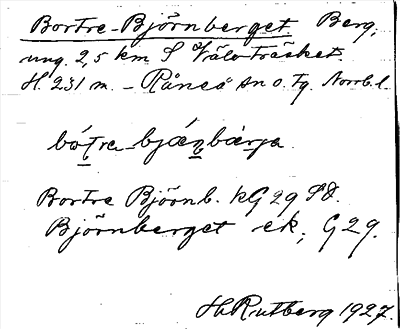 Bortre-Björnberget Berg,
ung. 2,5 km S Välvträsket.
H. 231 m. – Råneå sn o. tg. Norrb. l.
bó̱tra bjǽṉbærja
Bortre Björnb. kG 29 SO.
Björnberget ek, G 29.
H. Rutberg 1927.